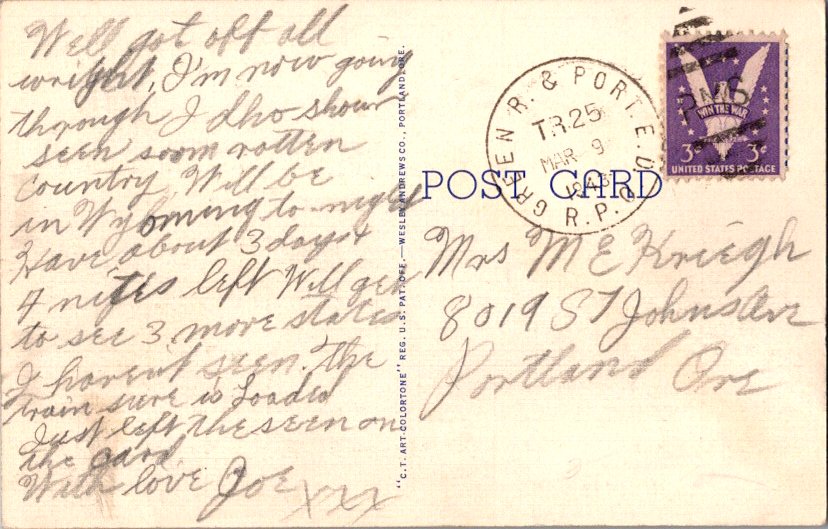 Well got off all
wright, I'm now going
through Idho shour
seen soom rotten
country, Will be
in Wyoming to night
Have about 3 days +
4 nites left Will get
to see 3 more states
I haven't seen. The
train sure is Loaded
Just left the seen on
the card
With love Joe
xxx
"C.T. ART-COLORTONE" REG. U.S. PAT. OFF.—WESLEY ANDREWS CO., PORTLAND, ORE.
POST CARD
GREEN R. & PORT. E.D.
TR.25
MAR 9
1943
R.P.O.
RMS
WIN THE WAR
3c 3c
UNITED STATES POSTAGE
Mrs M E Kriegh
8019 ST Johns Ave
Portland Ore